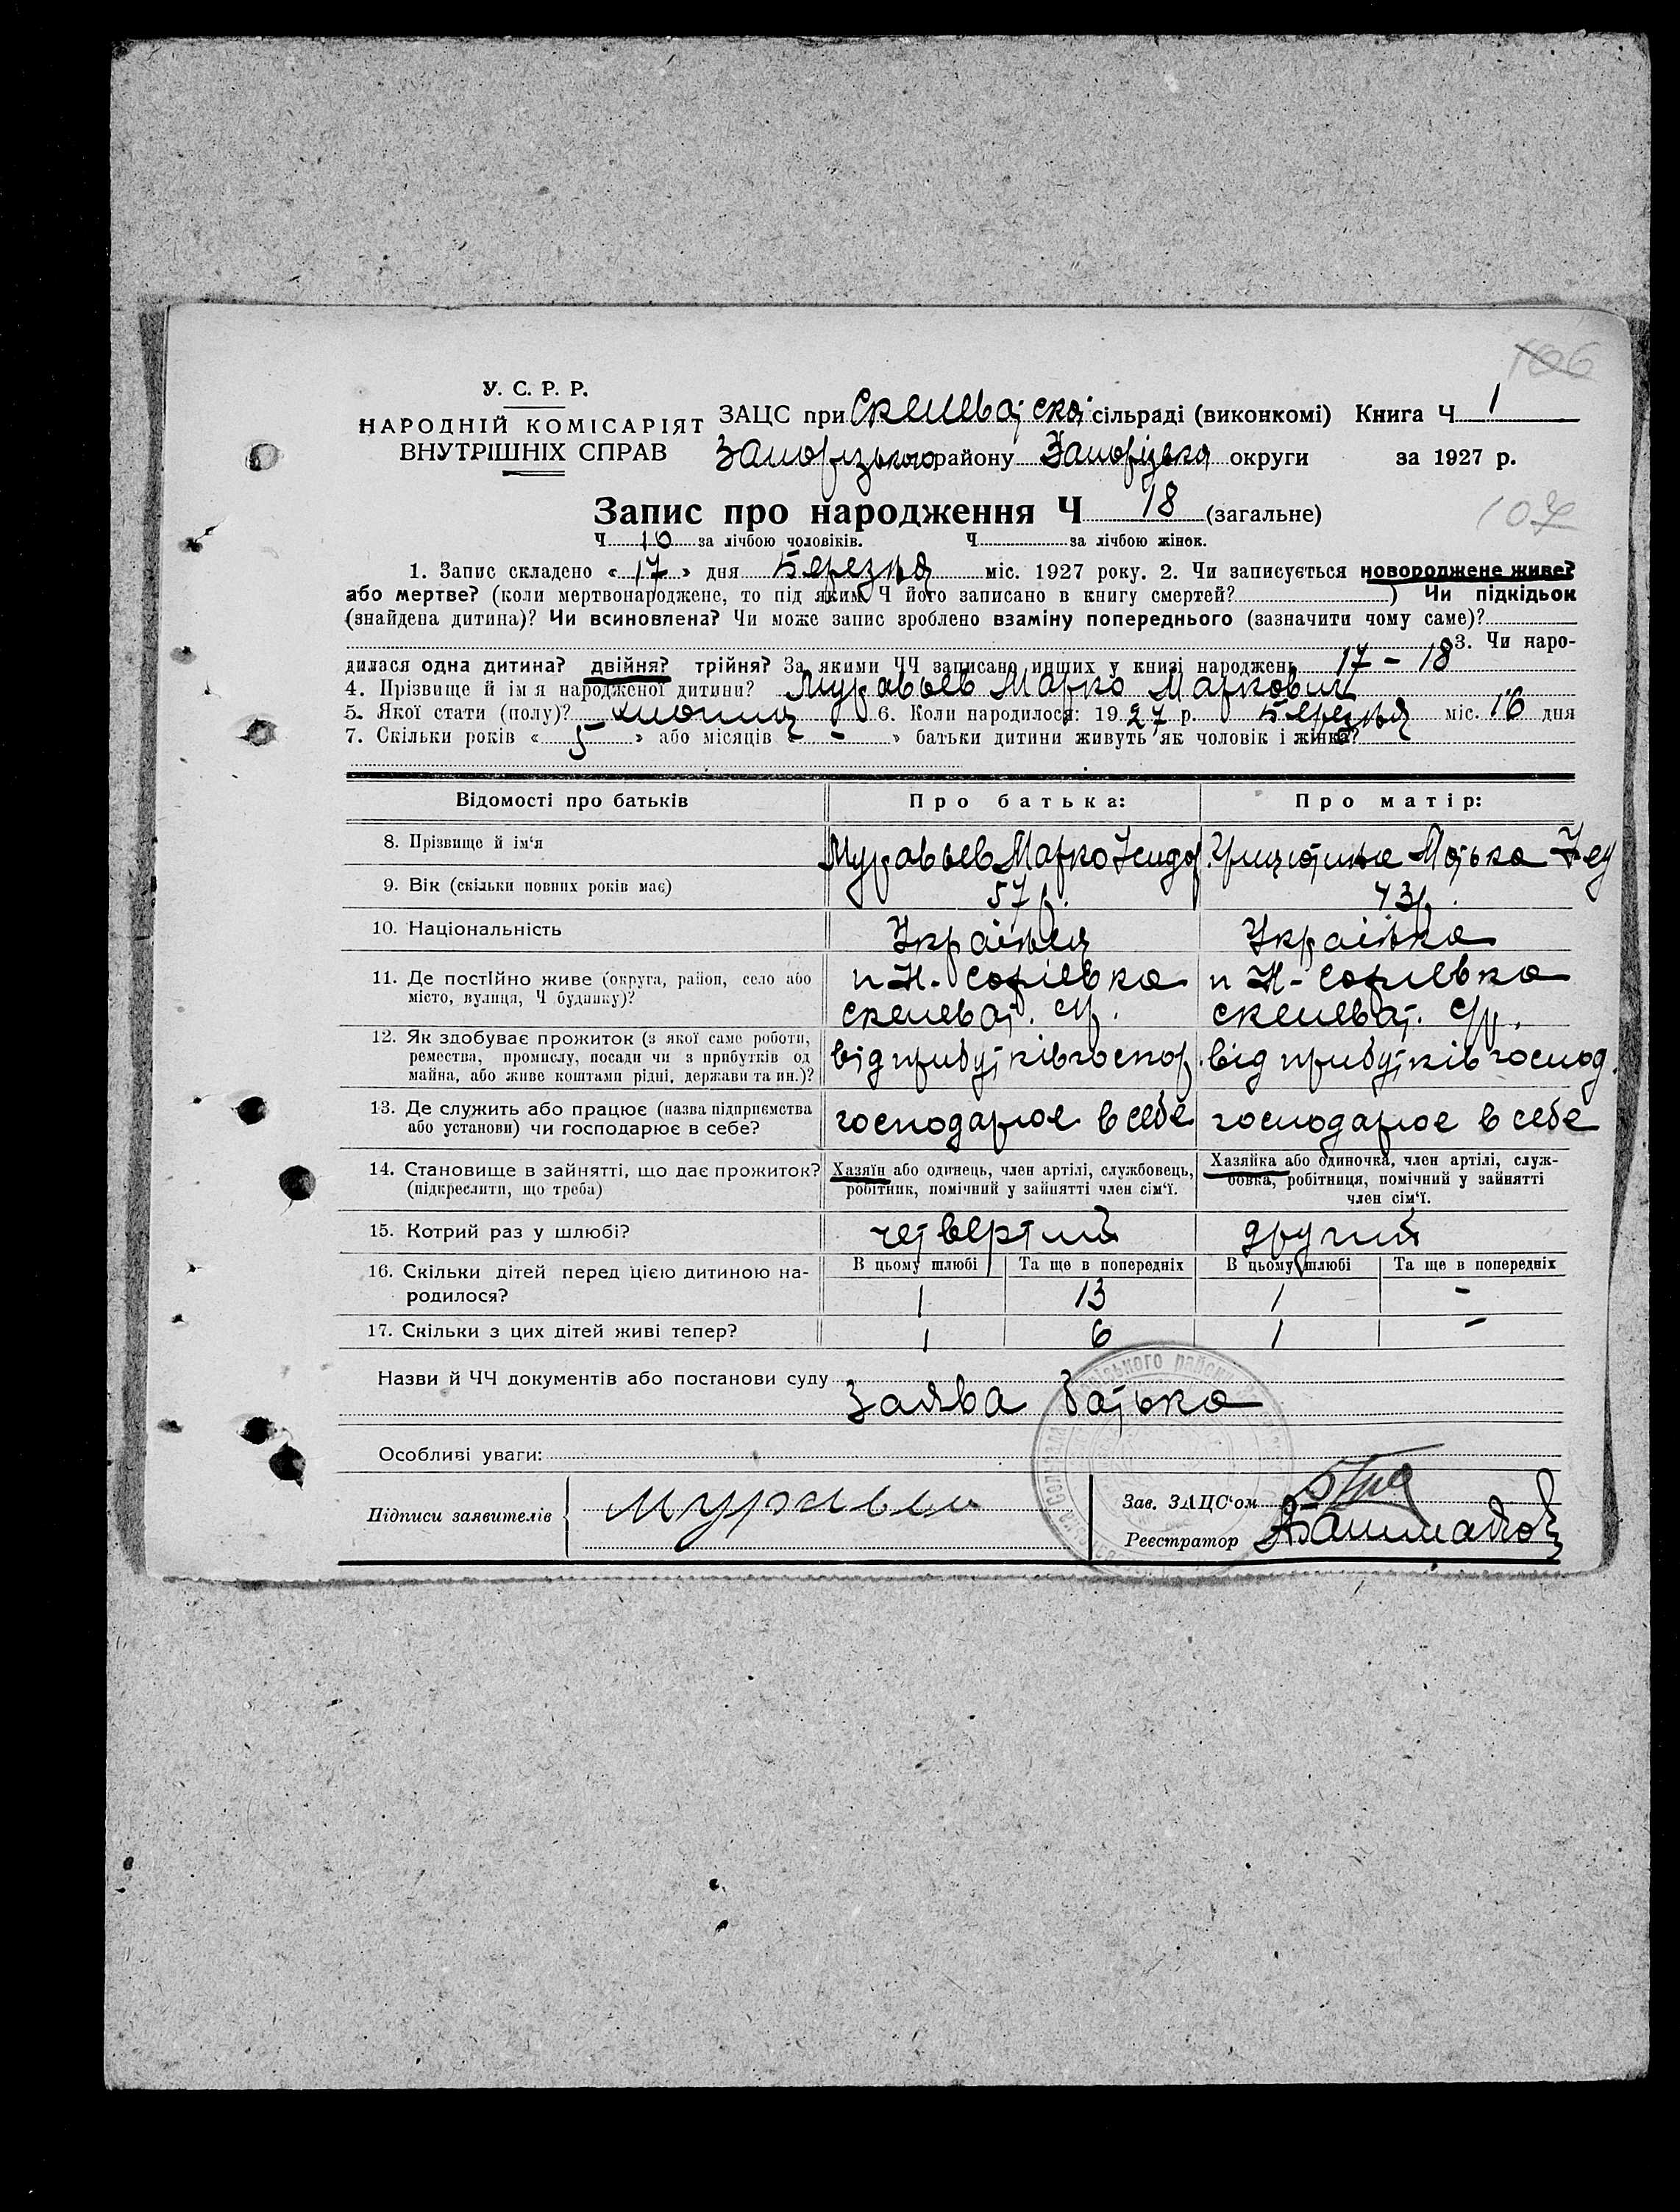 106
У. С. Р. Р.
НАРОДНІЙ КОМІСАРІЯТ
ВНУТРІШНІХ СПРАВ
ЗАЦС при Скелеватській сільраді (виконкомі) Книга Ч 1
Запорізького району Запорізька округи за 1927 р.
107
Запис про народження Ч 18 (загальне)
Ч 10 за лічбою чоловіків. Ч за лічбою жінок.
1. Запис складено « 17 » дня Березня міс. 1927 року. 2. Чи записується новороджене живе?
або мертве? (коли мертвонароджене, то під яким Ч його записано в книгу смертей? ) Чи підкідьок
(знайдена дитина)? Чи всиновлена? Чи може запис зроблено взаміну попереднього (зазначити чому саме)?
3. Чи наро-
дилася одна дитина? двійня? трійня? За якими ЧЧ записано инших у книзі народжень 17 - 18
4. Прізвище й імя народженої дитини? Муравьев Марко Маркович
5. Якої стати (полу)? хлопець 6. Коли народилося: 1927 р. Березня міс. 16 дня
7. Скільки років « 5 » або місяців « - » батьки дитини живуть як чоловік і жінка?
Відомості про батьків Про батька: Про матір:
8. Прізвище й ім'я Муравьев Марко Исидор.
9. Вік (скільки повних років має) 57 р. 43 р.
10. Національність Українец Українка
11. Де постійно живе (округа, район, село або
місто, вулиця, Ч будинку)?
п Н-Софіевка п Н-Софиевка
Скелеват. с/р. Скелеват. с/р.
12. Як здобуває прожиток (з якої саме роботи,
ремества, промислу, посади чи з прибутків од
майна, або живе коштами рідні, держави та ин.)?
від прибутків господ. від прибутків господ.
13. Де служить або працює (назва підприємства
або установи) чи господарює в себе?
господарює в себе господарює в себе
14. Становище в зайнятті, що дає прожиток?
(підкреслити, що треба)
Хазяїн або одинець, член артілі, службовець,
робітник, помічний у зайнятті член сім'ї.
Хазяйка або одиночка, член артілі, служ-
бовка, робітниця, помічний у зайнятті
член сім'ї.
15. Котрий раз у шлюбі? четвертий другий
16. Скільки дітей перед цією дитиною на-
родилося?
В цьому шлюбі Та ще в попередніх В цьому шлюбі Та ще в попередніх
1 13 1 -
17. Скільки з цих дітей живі тепер? 1 6 1 -
Назви й ЧЧ документів або постанови суду
Заява батька
Особливі уваги:
Підписи заявителів Муравьев
Зав. ЗАЦС'ом
Реєстратор